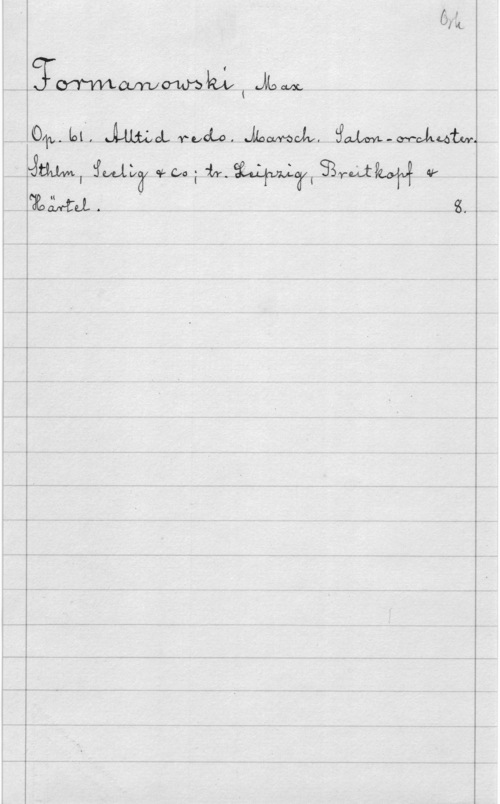 Ork
Formanowski, Max
Op. 61. Alltid redo. Marsch. Salon-orchester.
Sthlm, Seelig & Co; tr. Leipzig, Breitkopf &
Härtel. 8.